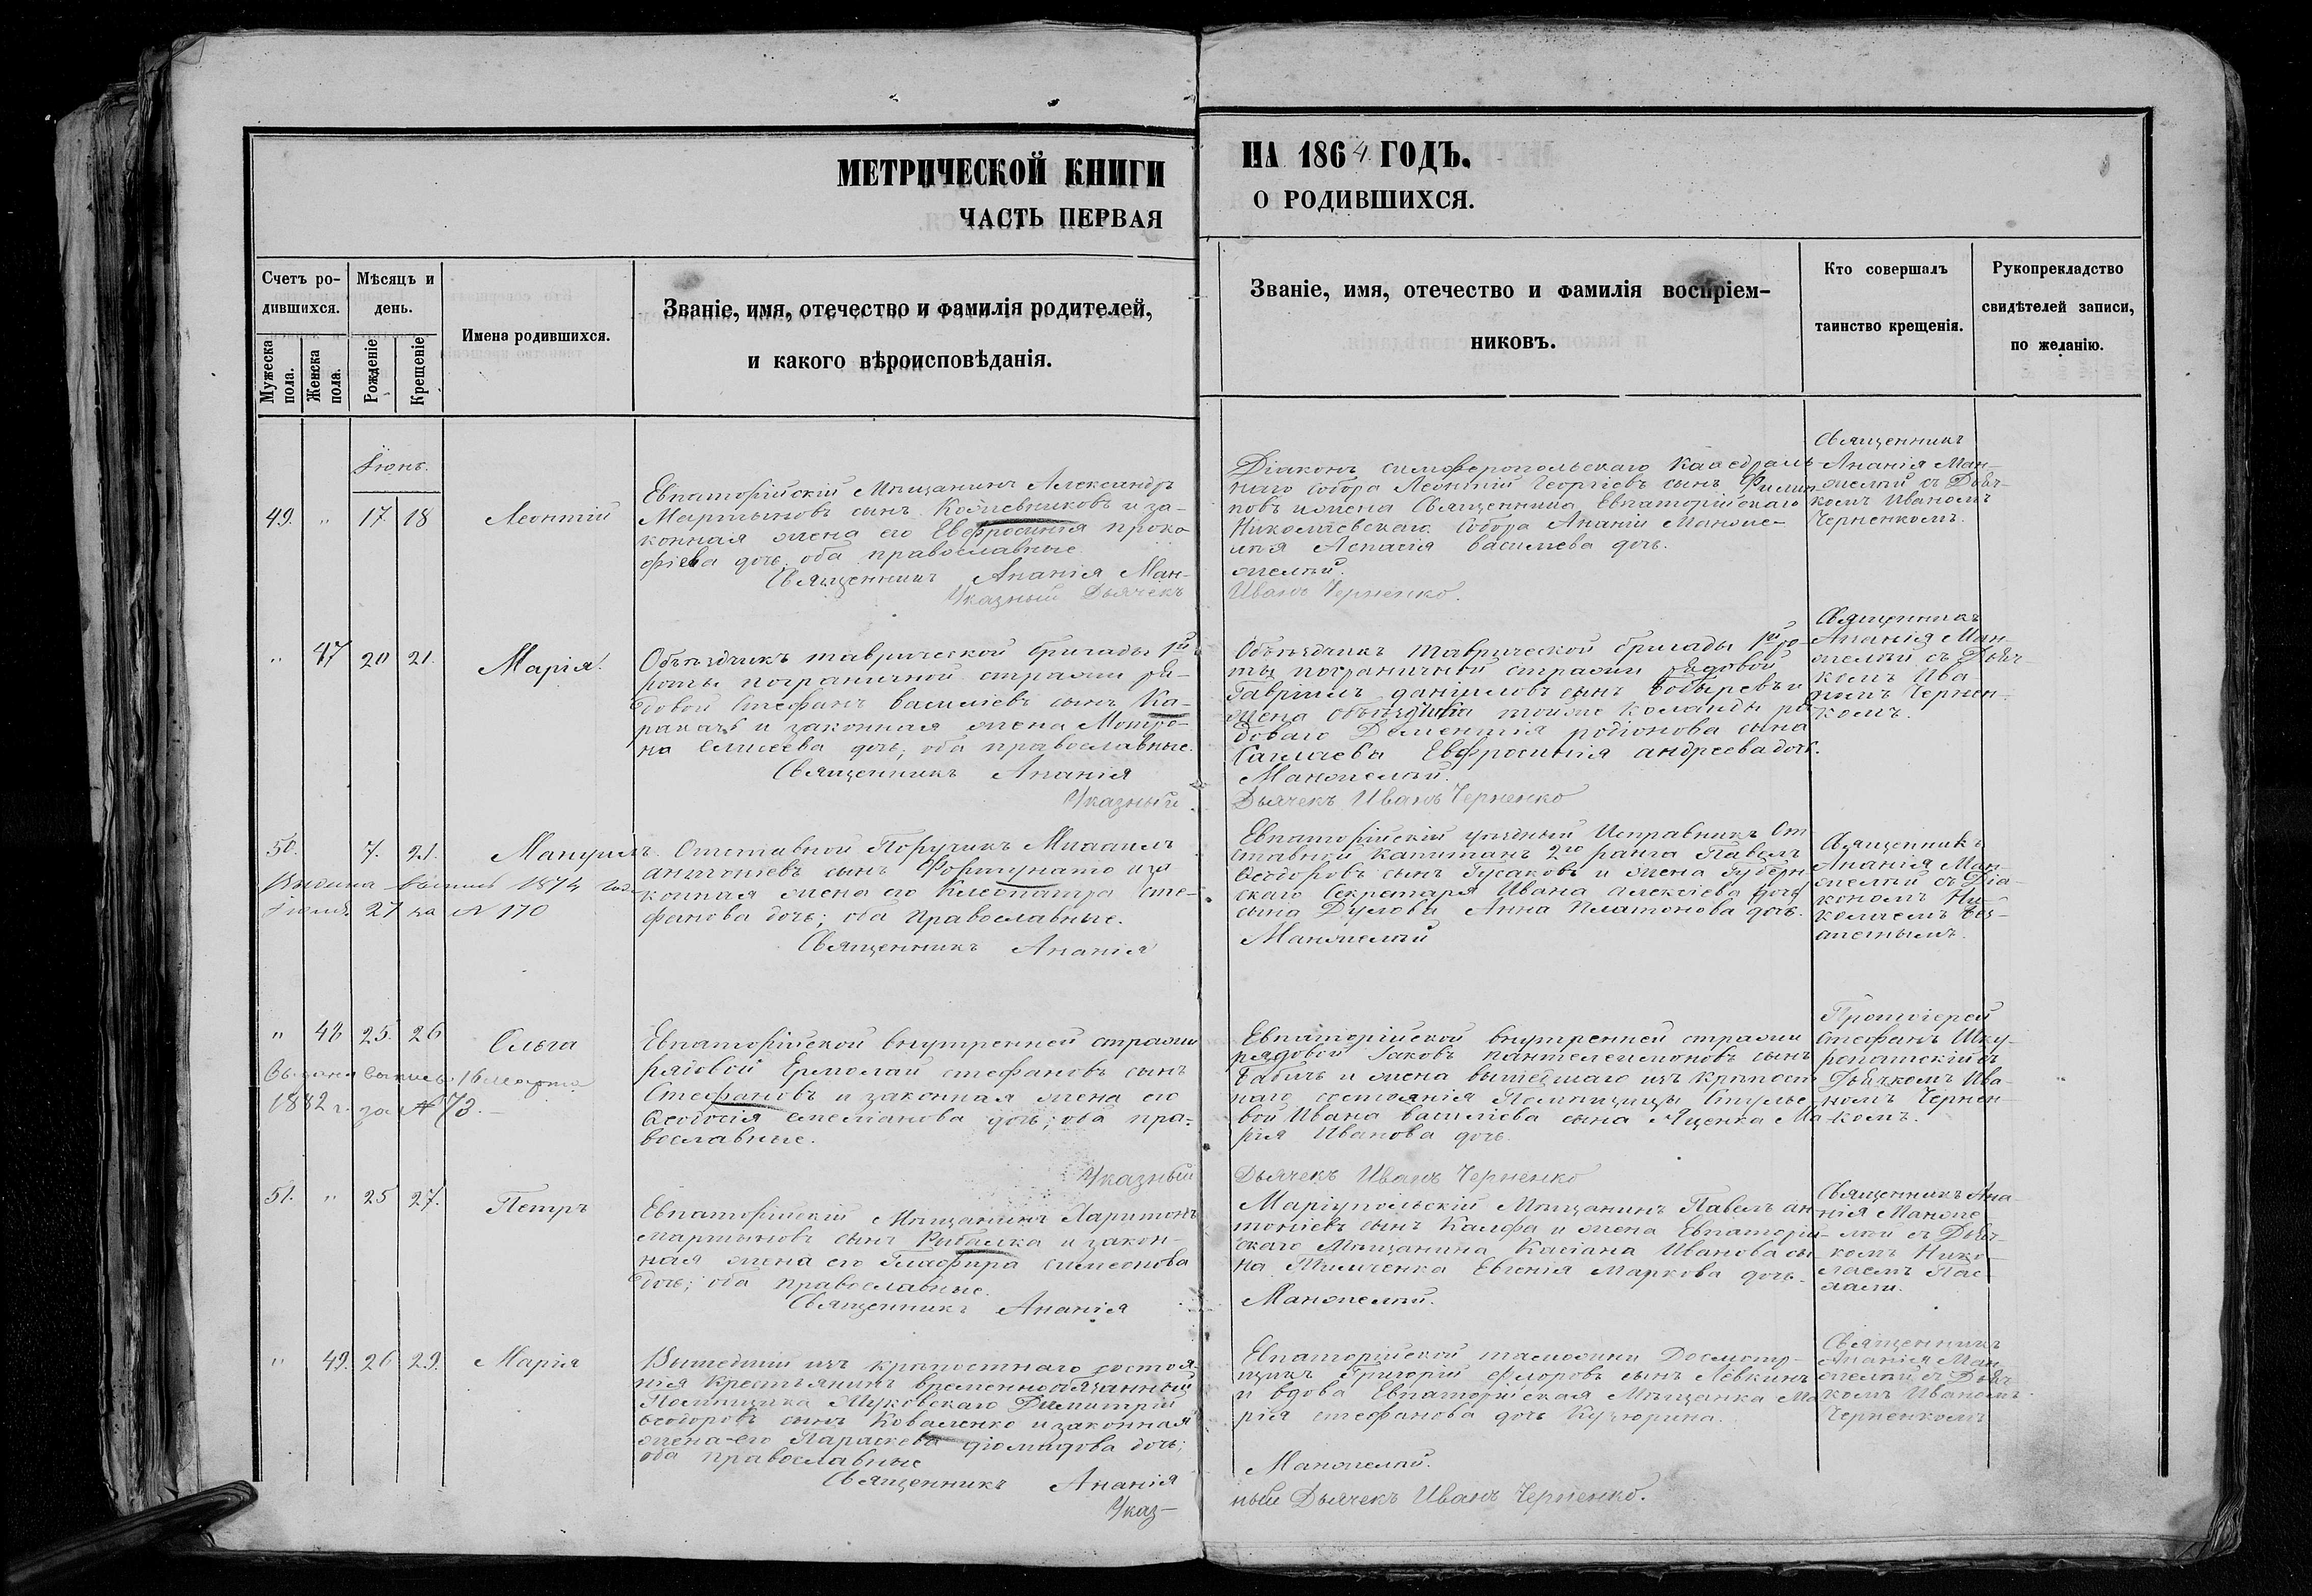 МЕТРИЧЕСКОЙ КНИГИ
ЧАСТЬ ПЕРВАЯ
НА 1864 ГОДЪ.
О РОДИВШИХСЯ.
Счетъ ро-
дившихся.
Мужеска
пола.
Женска
пола.
Мѣсяцъ и
день.
Рожденіе
Крещеніе
Имена родившихся.
Званіе, имя, отечество и фамилія родителей,
и какого вѣроисповѣданія.
Званіе, имя, отечество и фамилія воспріем-
никовъ.
Кто совершалъ
таинство крещенія.
Рукоприкладство
свидѣтелей записи,
по желанію.
Іюнь.
49. " 17 18 Леонтій
Евпаторійскій Мѣщанинъ Александръ
Мартыновъ сынъ Кожевниковъ и за-
конная жена его Евфросинія проко-
фіева дочь, оба православные
Священникъ Ананія Ман-
Указный Дьячекъ
Діаконъ симферопольскаго Каѳедраль-
наго собора Леонтій Георгіевъ сынъ Филип-
повъ и жена Священника Евпаторійскаго
Николаевскаго Собора Ананіи Манже-
лія Аспасія васильева дочь.
желій.
Иванъ Черненко.
Священникъ
Ананія Ман-
желій съ Дьяч-
комъ Иваномъ
Черненкомъ.
" 47 20 21. Марія.
Объѣздчикъ таврической бригады 1й
роты пограничной стражи ря-
довой Стефанъ васильевъ сынъ Ка-
ракачъ и законная жена Матро-
на Елисеева дочь, оба православные.
Священникъ Ананія
Указный
Объѣздчикъ таврической бригады 1й ро-
ты пограничной стражи рядовой
Гавріилъ даніиловъ сынъ Бобыревъ и
жена объѣздчика тойже команды ря-
доваго Дементія родіонова сына
Евфросинія андреева дочь.
Манжелій.
Дьячекъ Иванъ Черненко
Священникъ
Ананія Ман-
желій съ Дьяч-
комъ Ива-
номъ Чернен-
комъ.
50. 7. 21. Мануилъ.
Выдана выпись 1874 года
Іюля 27 за N 170
Отставной Поручикъ Михаилъ
антоніевъ сынъ Фортунато и за
конная жена его Клеопатра сте-
фанова дочь; оба Православные.
Священникъ Ананія
Евпаторійскій уѣздный Исправникъ От
ставной Капитанъ 2го ранга Павелъ
Ѳеодоровъ сынъ Гусаковъ и жена Губерн
скаго Секретаря Ивана алексіева
сына Дулова Анна Платонова дочь.
Манжелій
Священникъ
Ананія Ман-
желій съ Діа-
кономъ Ни-
колаемъ
" 48 25. 26 Ольга
Выдана выпись 16 марта
1882 г. за № 73.
Евпаторійской внутренней стражи
рядовой Ермолай стефановъ сынъ
Стефановъ и законная жена его
Ѳеодосія емеліанова дочь; оба пра-
вославные.
Указный
Евпаторійской внутренней стражи
рядовой Іаковъ пантелеимоновъ сынъ
Бабичъ и жена вышедшаго изъ крѣпост
наго состоянія Помѣщицы
Ивана васильева сына Яценка Ма-
рія Иванова дочь.
Дьячекъ Иванъ Черненко
Протоіерей
Стефанъ Шку-
ропатскій съ
Дьячкомъ Ива-
номъ Чернен-
комъ.
51. " 25 27. Петръ
Евпаторійскій Мѣщанинъ Харитонъ
мартыновъ сынъ Рыбалка и закон-
ная жена его Глафира симеонова
дочь; оба православные.
Священникъ Ананія
Маріупольскій Мѣщанинъ Павелъ ан-
тоніевъ сынъ Калфа и жена Евпаторій-
скаго Мѣщанина Касіана Иванова сы
на Тимченка Евгенія маркова дочь.
Манжелій.
Священникъ Ана-
нія Манже
лій съ Дьяч-
комъ Нико-
лаемъ
" 49. 26 29. Марія
Вышедшій изъ крѣпостнаго состоя-
нія Крестьянинъ временнообязанный
Помѣщика Муковскаго Димитрій
Ѳеодоровъ сынъ Коваленко и законная
жена его Параскева діомидова дочь;
оба православные
Священникъ Ананія
Указ-
Евпаторійской таможни Досмотр-
щикъ Григорій флоровъ сынъ Левкинъ
и вдова Евпаторійская Мѣщанка Ма-
рія стефанова дочь
Манжелій.
ный Дьячекъ Иванъ Черненко.
Священникъ
Ананія Ман-
желій съ Дьяч-
комъ Иваномъ
Черненкомъ